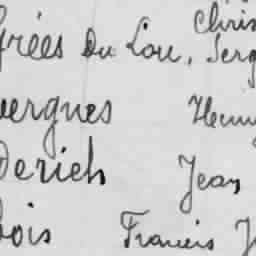 Chris
grées Du Lou, Serg
vergnes Henry
Derich Jean
bois Francis J